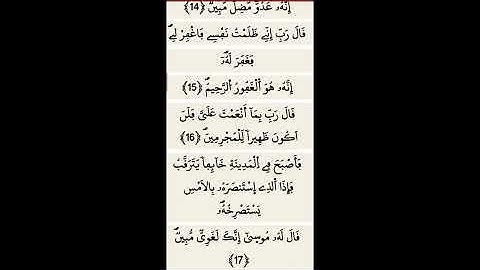 إِنَّهُۥ عَدُوّٞ مُّضِلّٞ مُّبِينٞۖ ﴿14﴾
قَالَ رَبِّ إِنِّے ظَلَمْتُ نَفْسِے فَاغْفِرْ لِےۖ
فَغَفَرَ لَهُۥٓۖ
إِنَّهُۥ هُوَ اَ۬لْغَفُورُ اُ۬لرَّحِيمُۖ ﴿15﴾
قَالَ رَبِّ بِمَآ أَنْعَمْتَ عَلَيَّ فَلَنَ
اَكُونَ ظَهِيراٗ لِّلْمُجْرِمِينَۖ ﴿16﴾
فَأَصْبَحَ فِے اِ۬لْمَدِينَةِ خَآئِفاٗ يَتَرَقَّبُ
فَإِذَا اَ۬لذِے اِ۪سْتَنصَرَهُۥ بِالَامْسِ
يَسْتَصْرِخُهُۥۖ
قَالَ لَهُۥ مُوسَىٰٓ إِنَّكَ لَغَوِيّٞ مُّبِينٞۖ
﴿17﴾